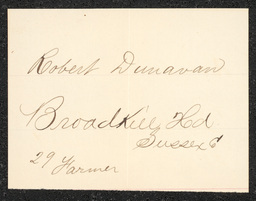 Robert Dunavan
Broadkill Hd
Sussex C
29 Farmer